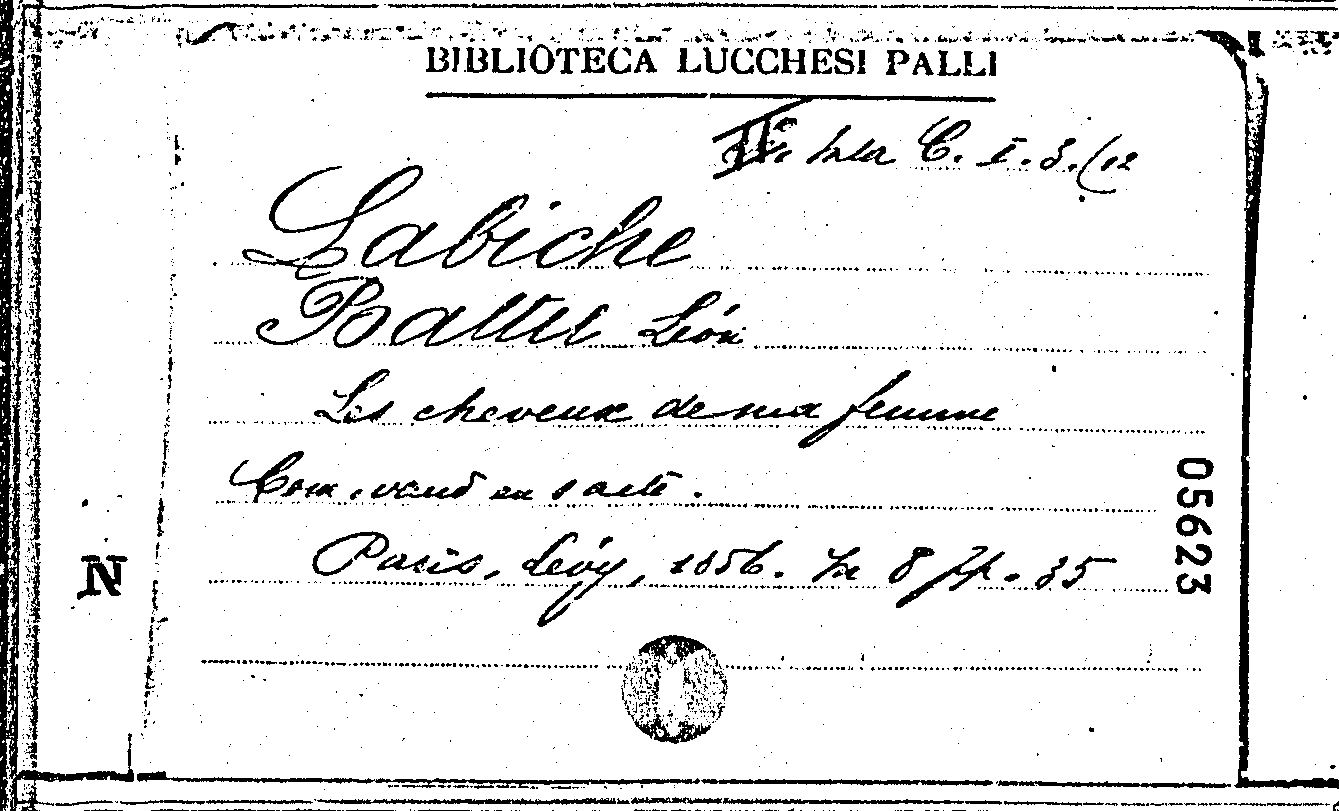 BIBLIOTECA LUCCHESI PALLI
Sala C. I. 3. (12
Labiche
Battu Léon
Les cheveux de ma femme
Com. vaud en 1 acte.
Paris, Lévy, 1856. In 8 pp. 35
05623
N